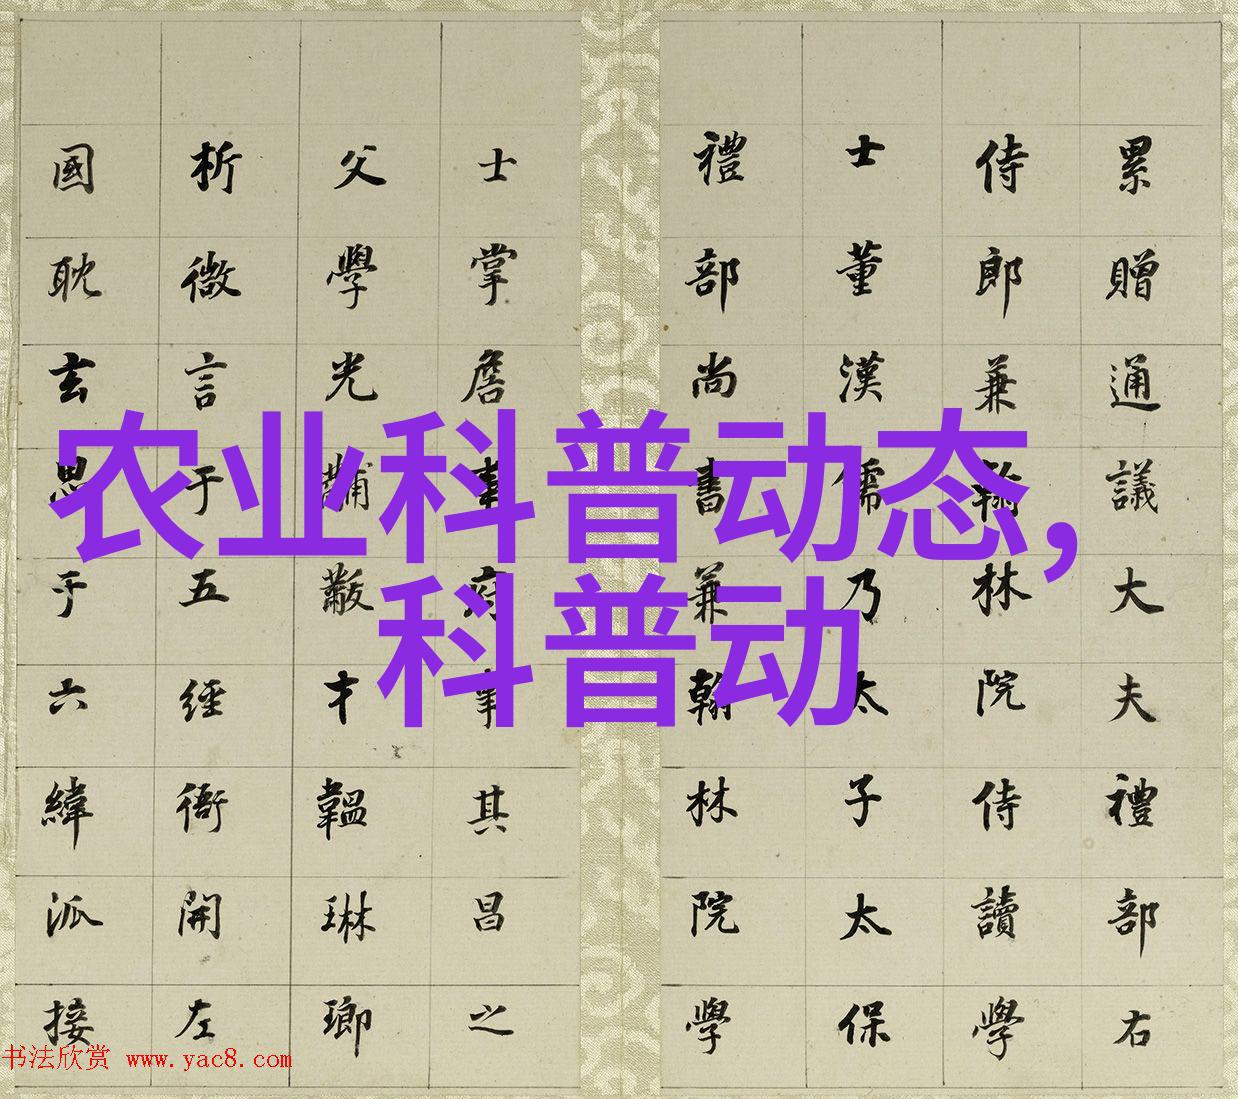 累贈通議大夫禮部右
侍郎兼翰林院侍讀學
士董漢儒乃太子太保
禮部尚書兼翰林院學
士掌詹事府事其昌之
父學光黼黻才韞琳瑯
析微言于五經衜開左
國耽玄思于六緯派接
农业科普动态,
科普动
书法欣赏 www.yac8.com